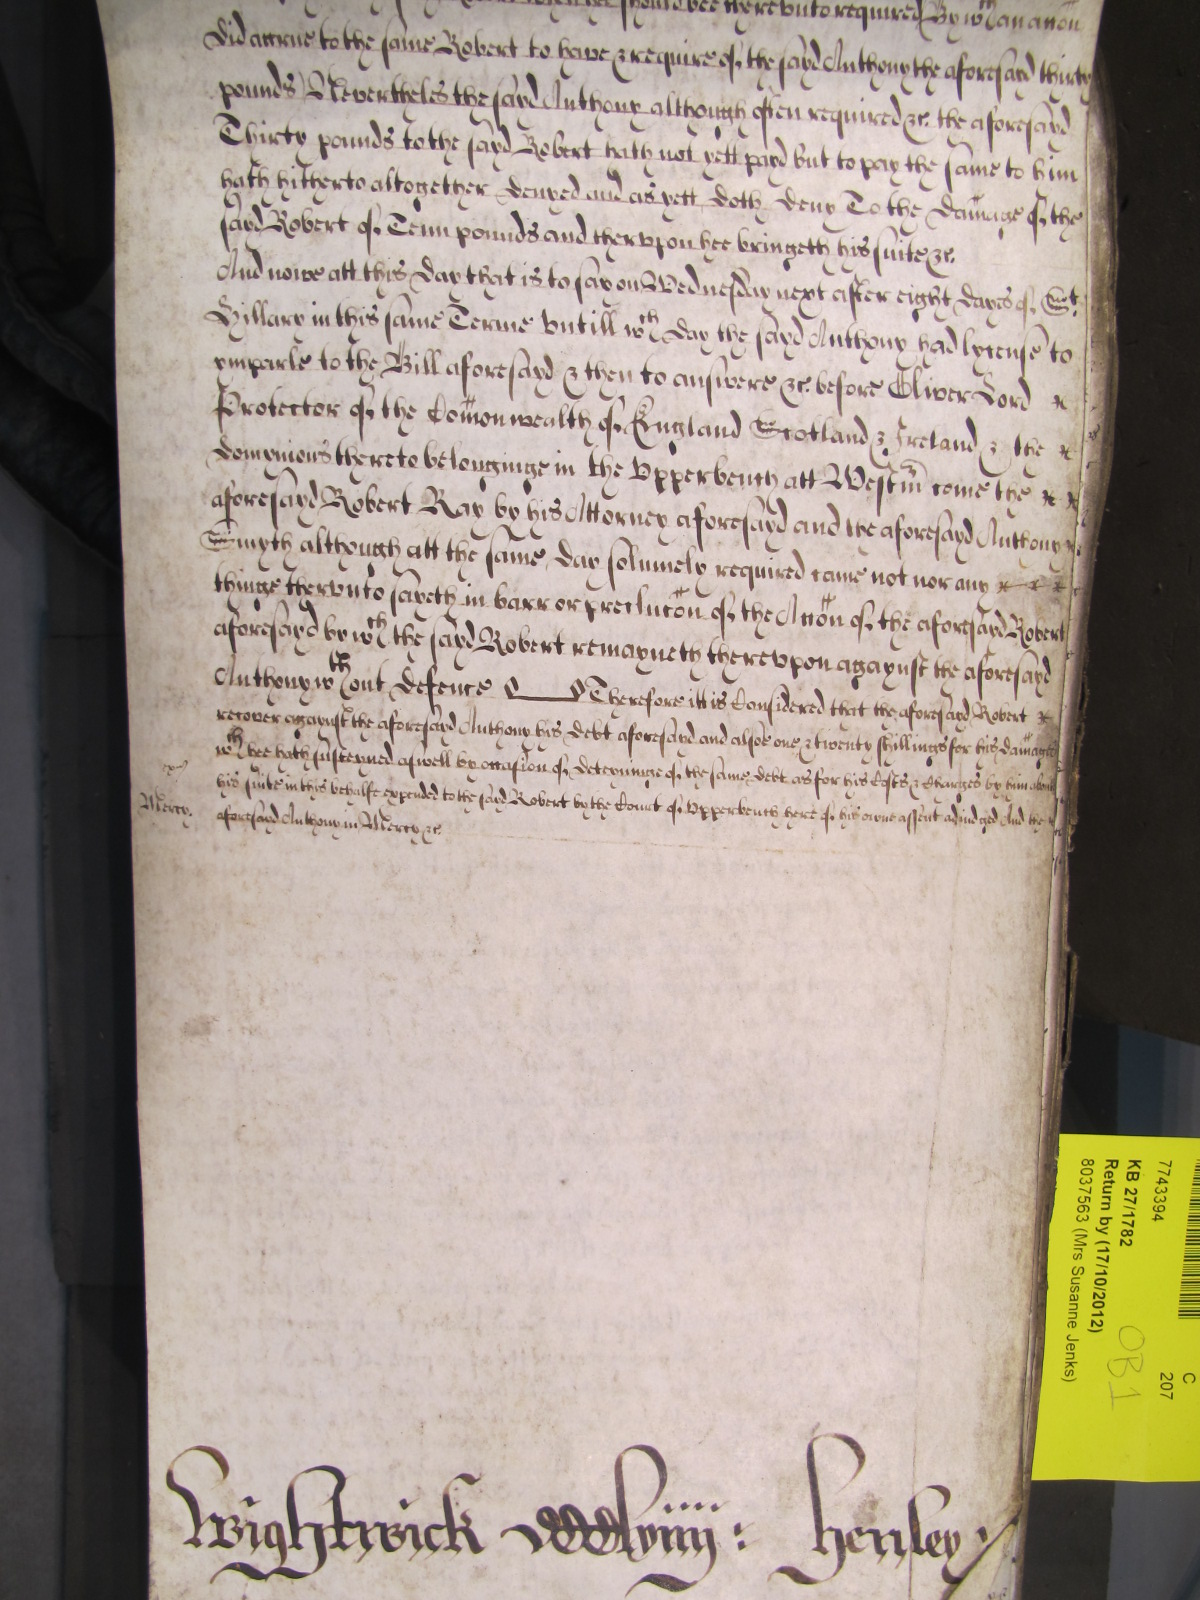 should bee therevnto required By wch an accon
did accrue to the same Robert to have & require of the sayd Anthony the aforesayd thirty
pounds Nevertheles the sayd Anthony although often required &c. the aforesayd
Thirty pounds to the sayd Robert hath not yett payd but to pay the same to him
hath hitherto altogether denyed and as yett doth deny To the damage of the
sayd Robert of Tenn pounds and thervpon hee bringeth his suite &c.
And nowe att this day that is to say on Wednesday next after eight dayes of St.
Hillary in this same Terme vntill wch day the sayd Anthony had lycense to
ymparle to the Bill aforesayd & then to answere &c. before Oliver Lord
Protector of the Comonwealth of England Scotland & Ireland & the
domynions thereto belonginge in the Vpperbench att Westm come the
aforesayd Robert Ray by his Attorney aforesayd and the aforesayd Anthony
Smyth although att the same day solumely required came not nor any
thinge thervnto sayeth in barr or preclucon of the Accon of the aforesayd Robert
aforesayd by wch the sayd Robert remayneth therevpon agaynst the aforesayd
Anthony wthout defence Therefore itt is Considered that the aforesayd Robert
recover agaynst the aforesayd Anthony his debt aforesayd and alsoe one & twenty shillings for his damages
wch hee hath susteyned aswell by occasion of deteyninge of the same debt as for his Costs & Charges by him about
his suite in this behalfe expended to the sayd Robert by the Court of Vpperbench here of his owne assent adiudged And the
Mercy.
aforesayd Anthony in Mercy &c.
Wightwick Henley
7743394
KB 27/1782
Return by (17/10/2012)
8037563 (Mrs Susanne Jenks)
C
207
OB1